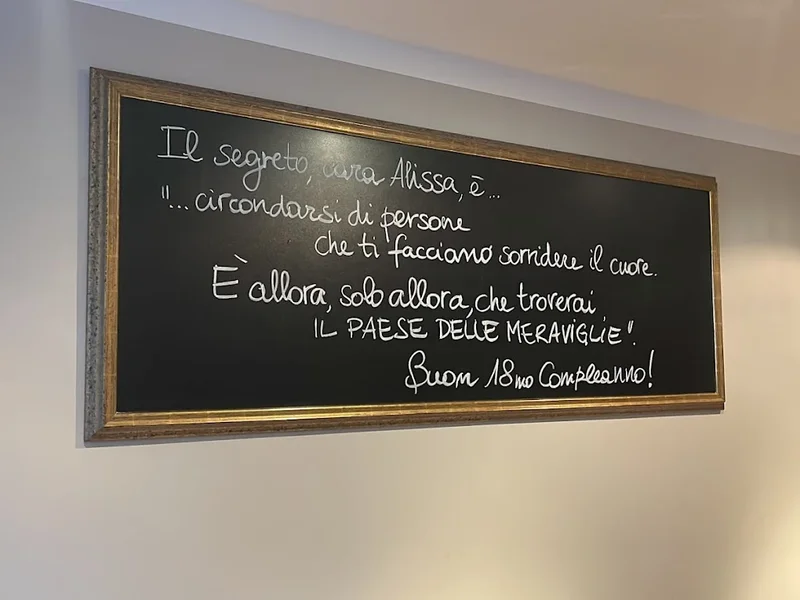 Il segreto, cara Alissa, è...
"...circondarsi di persone
che ti facciano sorridere il cuore.
È allora, solo allora, che troverai
IL PAESE DELLE MERAVIGLIE".
Buon 18mo Compleanno!